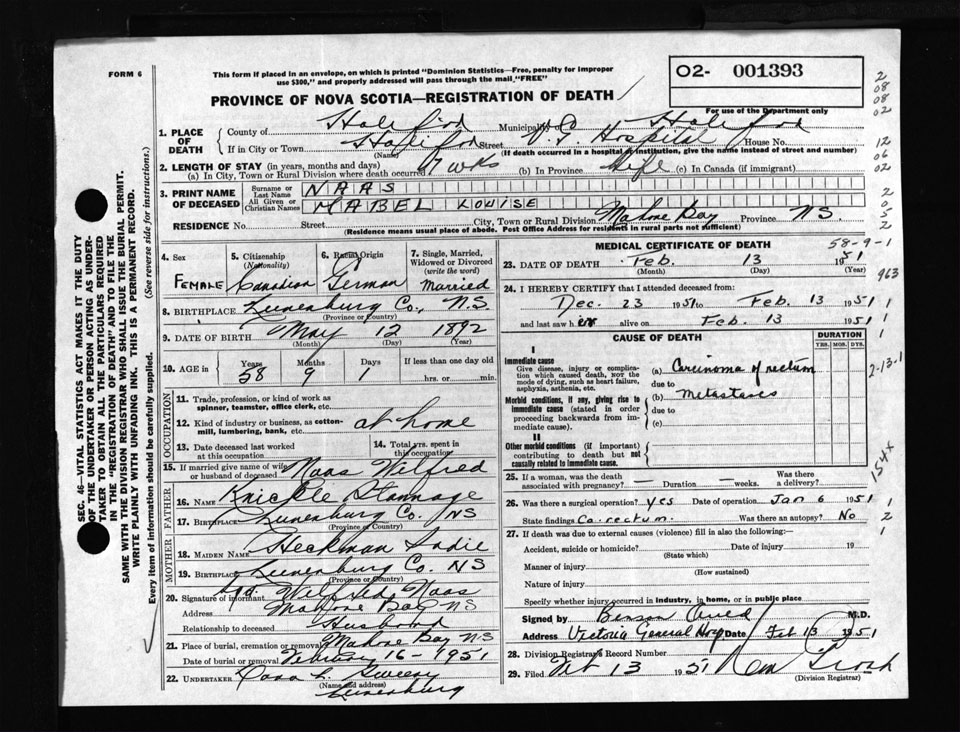 FORM 6
This form if placed in an envelope, on which is printed "Dominion Statistics—Free, penalty for improper
use $300," and properly addressed will pass through the mail "FREE"
O2- 001393
For use of the Department only
PROVINCE OF NOVA SCOTIA—REGISTRATION OF DEATH
1. PLACE OF DEATH
County of Halifax Municipality of Halifax
If in City or Town Halifax Street V.G. Hospital House No.
(Name) (If death occurred in a hospital or institution, give the name instead of street and number)
2. LENGTH OF STAY (in years, months and days)
(a) In City, Town or Rural Division where death occurred 7 wks (b) In Province Life (c) In Canada (if immigrant)
3. PRINT NAME OF DECEASED
Surname or Last Name NAAS
All Given or Christian Names MABEL LOUISE
RESIDENCE No. Street City, Town or Rural Division Mahone Bay Province NS.
(Residence means usual place of abode. Post Office Address for residents in rural parts not sufficient)
4. Sex FEMALE
5. Citizenship (Nationality) Canadian
6. Racial Origin German
7. Single, Married, Widowed or Divorced (write the word) Married
8. BIRTHPLACE Lunenburg Co., N.S.
(Province or Country)
9. DATE OF BIRTH May 12 1892
(Month) (Day) (Year)
10. AGE in Years 58 Months 9 Days 1 If less than one day old
hrs. or min.
OCCUPATION
11. Trade, profession, or kind of work as
spinner, teamster, office clerk, etc.
12. Kind of industry or business, as cotton-
mill, lumbering, bank, etc. at home
13. Date deceased last worked
at this occupation
14. Total yrs. spent in
this occupation
15. If married give name of wife
or husband of deceased Naas Wilfred
FATHER
16. NAME Knickle Stannage
17. BIRTHPLACE Lunenburg Co. NS
(Province or Country)
MOTHER
18. MAIDEN NAME Heckman Sadie
19. BIRTHPLACE Lunenburg Co. NS
(Province or Country)
20. Signature of informant Sgd Wilfred Naas
Address Mahone Bay NS
Relationship to deceased Husband
21. Place of burial, cremation or removal Mahone Bay NS
Date of burial or removal February 16 - 1951
22. UNDERTAKER Sweeny
(Name and address)
Lunenburg
MEDICAL CERTIFICATE OF DEATH
58-9-1
23. DATE OF DEATH Feb. 13 1951
(Month) (Day) (Year)
24. I HEREBY CERTIFY that I attended deceased from:
Dec. 23 1951 to Feb. 13 1951
and last saw her alive on Feb. 13 1951
CAUSE OF DEATH
DURATION
YRS. MOS. DYS.
I
Immediate cause
Give disease, injury or complica-
tion which caused death, NOT the
mode of dying, such as heart failure,
asphyxia, asthenia, etc.
(a) Carcinoma of rectum
due to
Morbid conditions, if any, giving rise to
immediate cause (stated in order
proceeding backwards from im-
mediate cause).
(b) Metastases
due to
(c)
II
Other morbid conditions (if important)
contributing to death but not
causally related to immediate cause.
25. If a woman, was the death
associated with pregnancy? — Duration — weeks. Was there a
delivery? —
26. Was there a surgical operation? yes Date of operation Jan 6 1951
State findings Ca. rectum. Was there an autopsy? No
27. If death was due to external causes (violence) fill in also the following:
Accident, suicide or homicide? Date of injury 19
(State which)
Manner of injury
(How sustained)
Nature of injury
Specify whether injury occurred in industry, in home, or in public place
Signed by Benson Auld M.D.
Address Victoria General Hosp Date Feb 13 1951
28. Division Registrar's Record Number
29. Filed 13 1951
(Division Registrar)
SEC. 46—VITAL STATISTICS ACT MAKES IT THE DUTY
OF THE UNDERTAKER OR PERSON ACTING AS UNDER-
TAKER TO OBTAIN ALL THE PARTICULARS REQUIRED
IN THE "REGISTRATION OF DEATH" AND TO FILE THE
SAME WITH THE DIVISION REGISTRAR WHO SHALL ISSUE THE BURIAL PERMIT.
WRITE PLAINLY WITH UNFADING INK. THIS IS A PERMANENT RECORD.
Every item of information should be carefully supplied. (See reverse side for instructions.)
2
08
08
02
12
06
02
2
0
5
2
963
1
1
1
2-13-1
154X
1
2
1